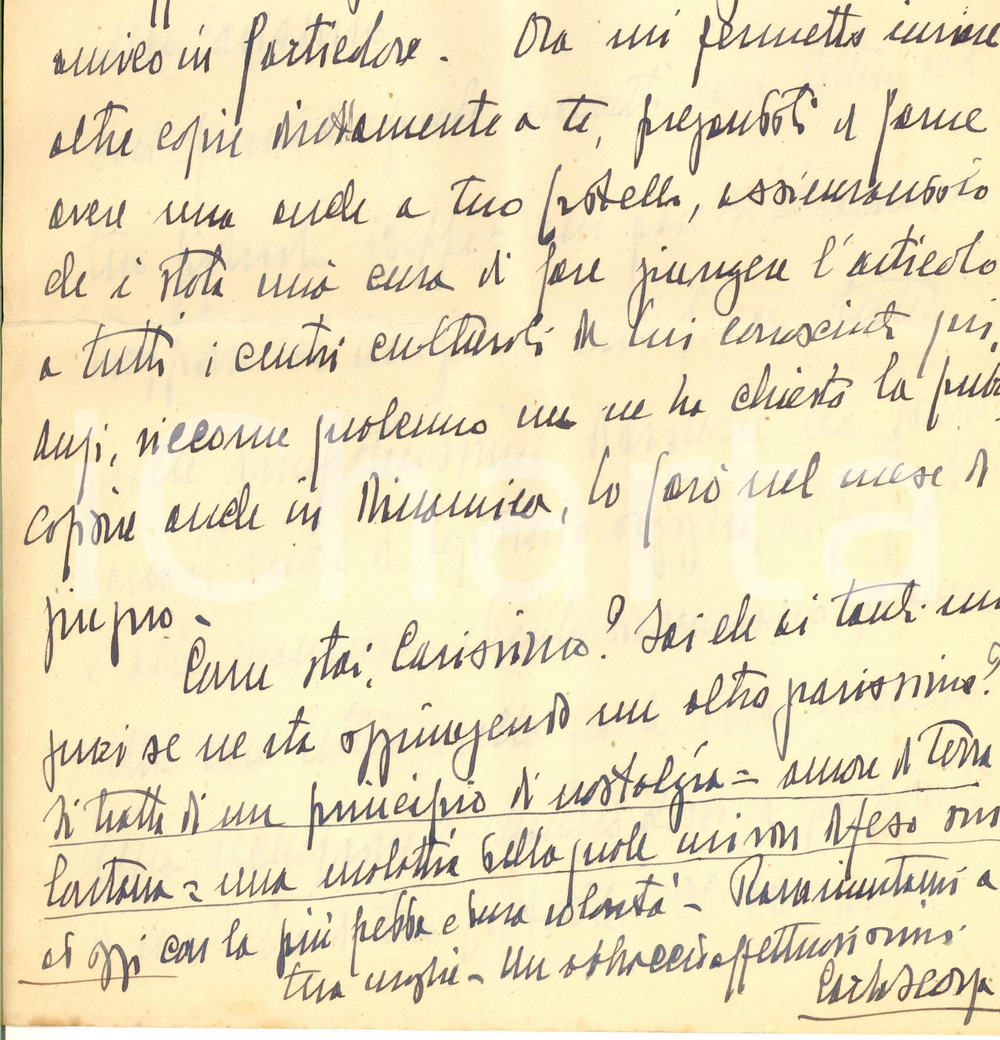 amico in particolare. Ora mi permetto inviare
altre copie direttamente a te, pregandoti di farne
avere una anche a tuo fratello, assicurandolo
che è stata mia cura di fare giungere l'articolo
a tutti i centri culturali da lui conosciuti
anzi, siccome qualcuno me ne ha chiesto la pub
anche in Dinamica, lo farò nel mese di
giugno -
Come stai, Carissimo? Sai che ai tanti
guai se ne sta aggiungendo un altro
Si tratta di un principio di nostalgia = amore di terra
lontana = una malattia dalla quale mi son difeso sino
ad oggi con la più e dura volontà - Rammentami a
tua moglie - Un abbraccio affettuosissimo
Carlo Scorza
iCharta